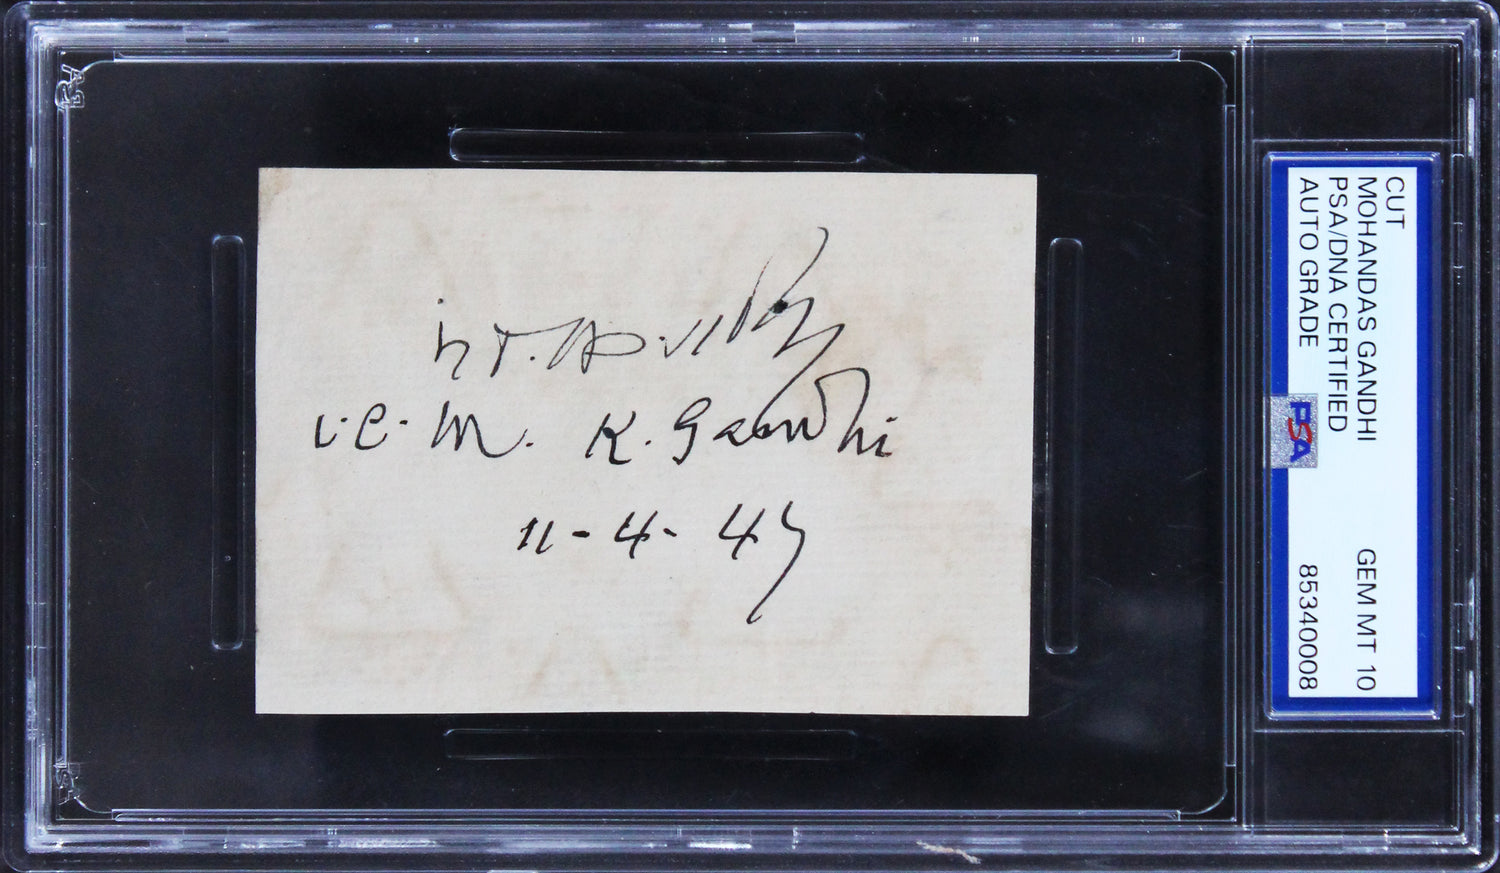 i.e. M. K. Gandhi
11-4-47
CUT
MOHANDAS GANDHI GEM MT 10
PSA/DNA CERTIFIED
AUTO GRADE 85340008
PSA